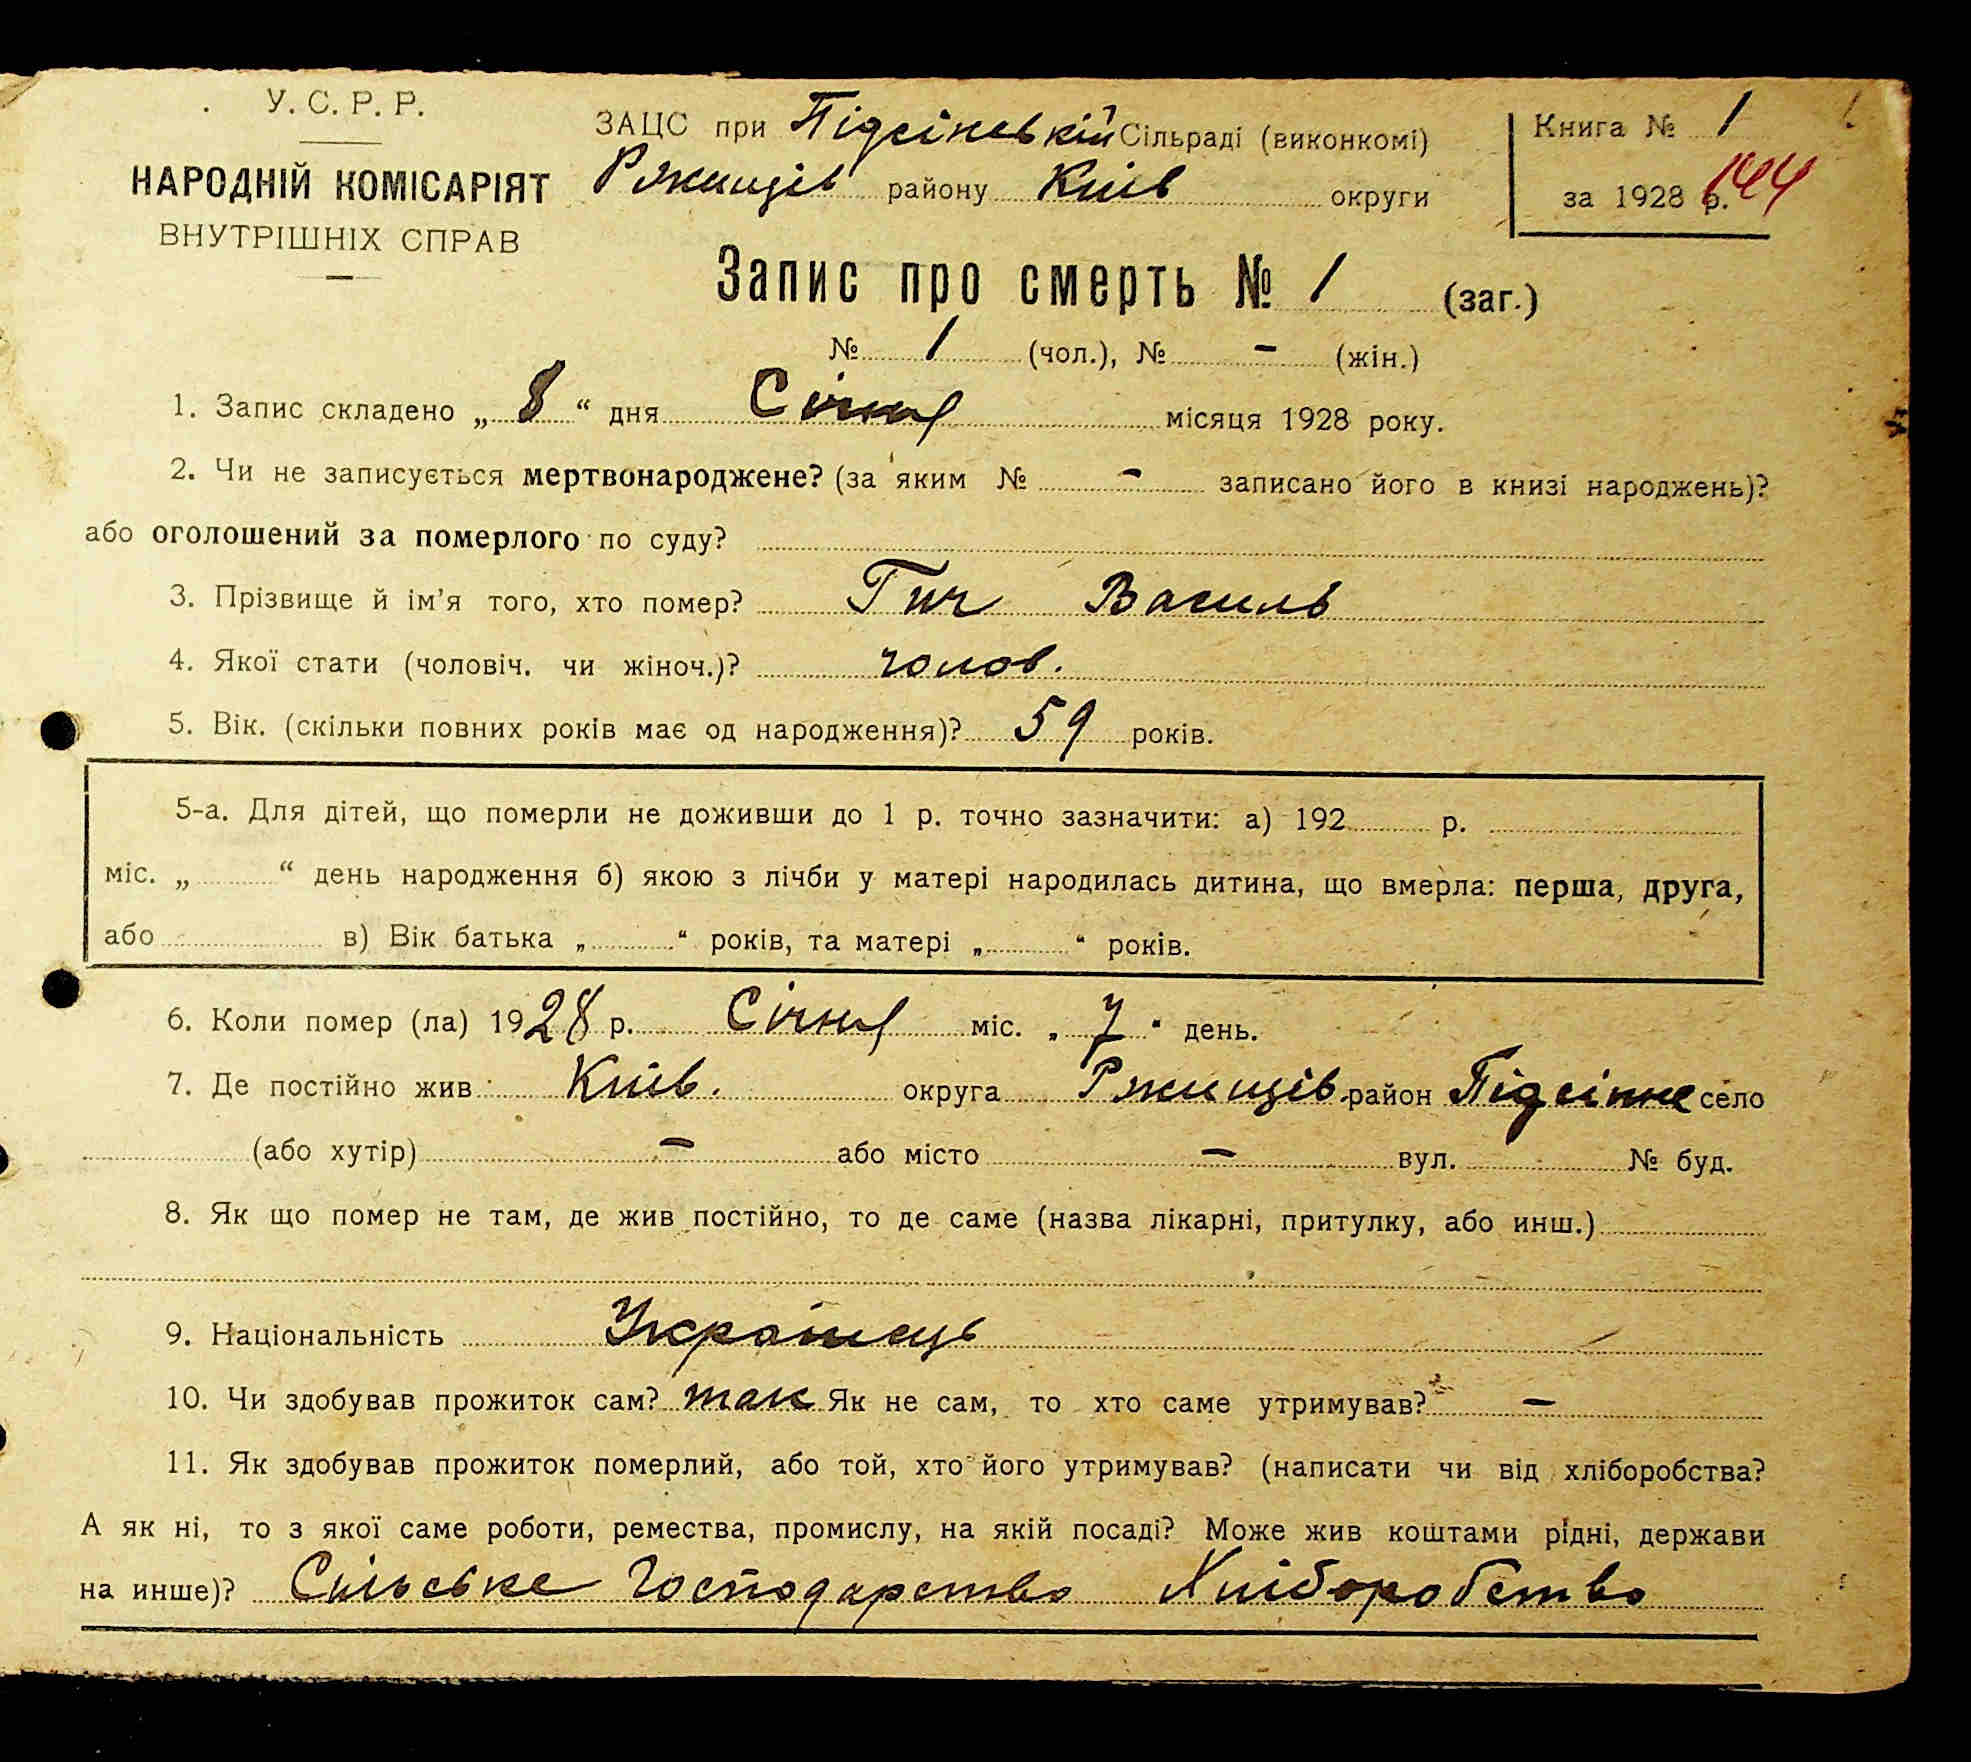 У. С. Р. Р.
НАРОДНІЙ КОМІСАРІЯТ
ВНУТРІШНІХ СПРАВ
ЗАЦС при Підсінській Сільраді (виконкомі)
Ржищів району Київ округи
Книга № 1
за 1928 р. 144
Запис про смерть № 1 (заг.)
№ 1 (чол.), № - (жін.)
1. Запис складено „ 8 “ дня Січня місяця 1928 року.
2. Чи не записується мертвонароджене? (за яким № - записано його в книзі народжень)?
або оголошений за померлого по суду?
3. Прізвище й ім’я того, хто помер? Гич Василь
4. Якої стати (чоловіч. чи жіноч.)? чолов.
5. Вік. (скільки повних років має од народження)? 59 років.
5-а. Для дітей, що померли не доживши до 1 р. точно зазначити: а) 192 р.
міс. „ “ день народження б) якою з лічби у матері народилась дитина, що вмерла: перша, друга,
або в) Вік батька „ “ років, та матері „ “ років.
6. Коли помер (ла) 1928 р. Січня міс. „ 7 “ день.
7. Де постійно жив Київ. округа Ржищів. район Підсінне село
(або хутір) - або місто - вул. № буд.
8. Як що помер не там, де жив постійно, то де саме (назва лікарні, притулку, або инш.)
9. Національність Українець
10. Чи здобував прожиток сам? так Як не сам, то хто саме утримував? -
11. Як здобував прожиток померлий, або той, хто його утримував? (написати чи від хліборобства?
А як ні, то з якої саме роботи, ремества, промислу, на якій посаді? Може жив коштами рідні, держави
на инше)? Сільське Господарство Хліборобство